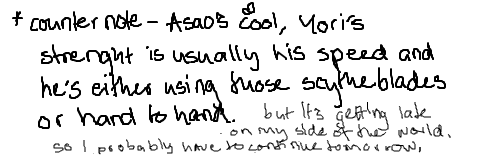 * counter note - Asao's cool, Yori's
strenght is usually his speed and
he's either using those scytheblades
or hard to hand. but it's getting late
on my side of the world.
so I probably have to continue tomorrow,